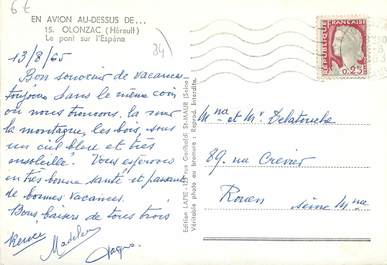 6 €
EN AVION AU-DESSUS DE...
15. OLONZAC (Hérault)
Le pont sur l'Espène
34
13/8/65
Bon souvenir de vacances
toujours dans le même coin
où nous trouvons, la mer
la montagne, les bois, sous
un ciel bleu et très
ensoleillé. Vous espérons
en très bonne santé et passant
de bonnes vacances.
Bons baisers de tous trois
Madeleine
Edition LAPIE - 123 rue Garibaldi St-MAUR (Seine)
Véritable photo au bromure - Reprod. Interdite
REPUBLIQUE FRANÇAISE
0,25
Mme et Mr Delatouche
89 rue Crevier
Rouen
Seine Mme